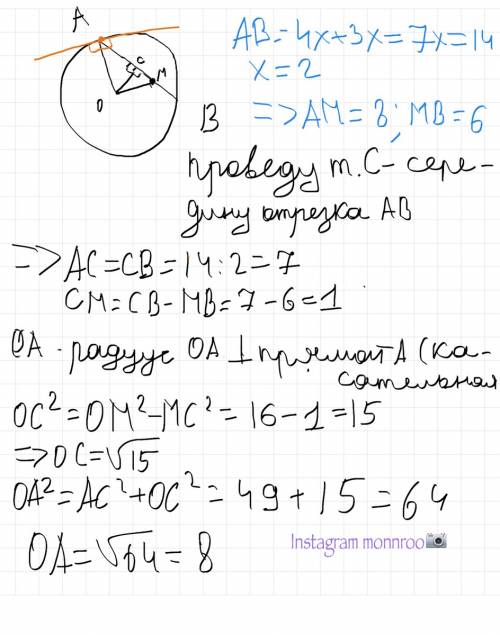 A
C
M
O
B
AB=4x+3x=7x=14
x=2
=>AM=8; MB=6
проведу т.C- сере-
дину отрезка AB
=>AC=CB=14:2=7
CM=CB-MB=7-6=1
OA - радуус OA⊥прямой A (ка-
сательная
OC²=OM²-MC²=16-1=15
=>OC=√15
OA²=AC²+OC²=49+15=64
OA=√64=8
Instagram monnroo📷